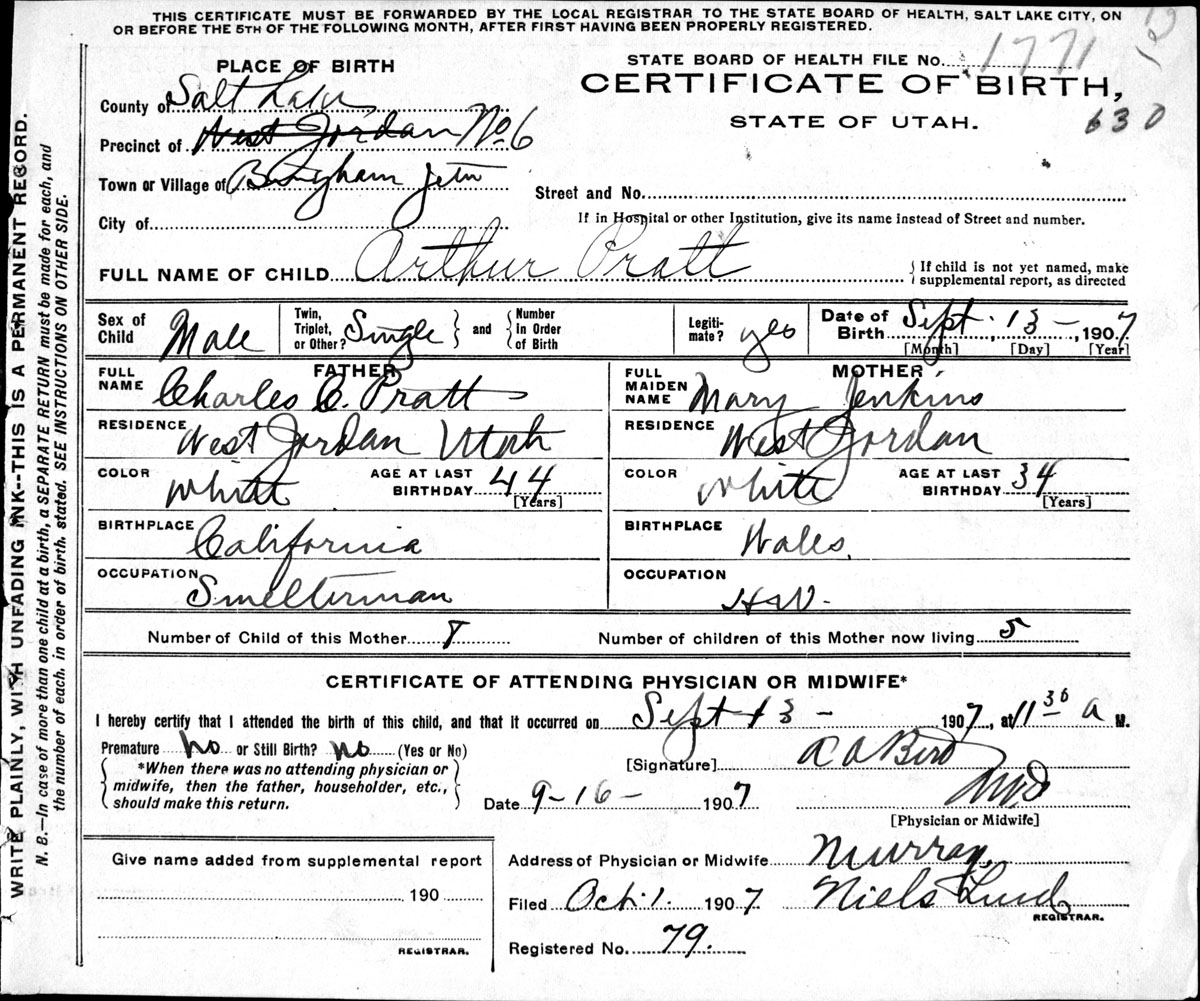 THIS CERTIFICATE MUST BE FORWARDED BY THE LOCAL REGISTRAR TO THE STATE BOARD OF HEALTH, SALT LAKE CITY, ON
OR BEFORE THE 5TH OF THE FOLLOWING MONTH, AFTER FIRST HAVING BEEN PROPERLY REGISTERED.
WRITE PLAINLY, WITH UNFADING INK--THIS IS A PERMANENT RECORD.
N. B.—In case of more than one child at a birth, a SEPARATE RETURN must be made for each, and
the number of each, in order of birth, stated. SEE INSTRUCTIONS ON OTHER SIDE.
PLACE OF BIRTH
County of Salt Lake
Precinct of West Jordan No. 6
Town or Village of Bingham Jctn
City of
STATE BOARD OF HEALTH FILE No. 1771
CERTIFICATE OF BIRTH,
STATE OF UTAH.
630
Street and No.
If in Hospital or other Institution, give its name instead of Street and number.
FULL NAME OF CHILD Arthur Pratt
{If child is not yet named, make
supplemental report, as directed
Sex of Child Male
Twin, Triplet, or Other? Single } and { Number In Order of Birth
Legiti-mate? yes
Date of Birth Sept. 13 -, 1907
[Month] [Day] [Year]
FATHER
FULL NAME Charles C. Pratt
RESIDENCE West Jordan Utah
COLOR White AGE AT LAST BIRTHDAY 44 [Years]
BIRTHPLACE California
OCCUPATION Smelterman
MOTHER
FULL MAIDEN NAME Mary Jenkins
RESIDENCE West Jordan
COLOR White AGE AT LAST BIRTHDAY 34 [Years]
BIRTHPLACE Wales.
OCCUPATION H.W.
Number of Child of this Mother 8 Number of children of this Mother now living 5
CERTIFICATE OF ATTENDING PHYSICIAN OR MIDWIFE*
I hereby certify that I attended the birth of this child, and that it occurred on Sept 13 - 1907, at 11 30 a M.
Premature no or Still Birth? no (Yes or No)
{*When there was no attending physician or
midwife, then the father, householder, etc.,
should make this return.}
[Signature] Bird
M.D.
Date 9-16- 1907
[Physician or Midwife]
Give name added from supplemental report
190
REGISTRAR.
Address of Physician or Midwife Murray,
Filed Oct. 1. 1907 Niels Lind
REGISTRAR.
Registered No. 79.